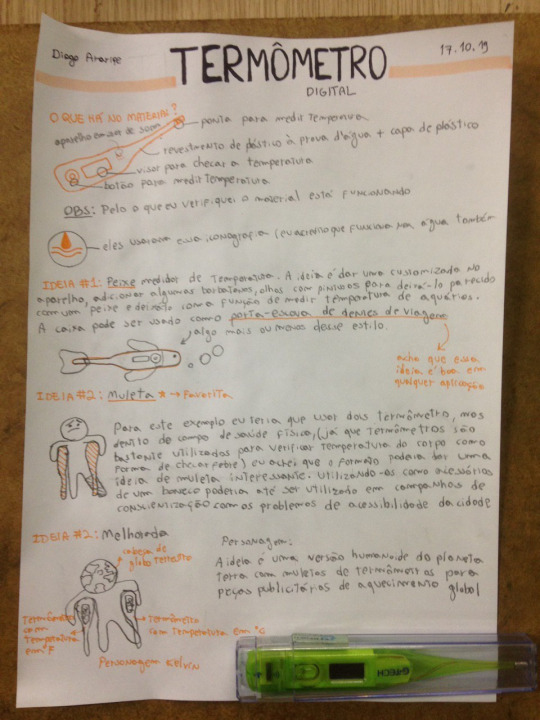 Diogo Ataripe
TERMÔMETRO
DIGITAL
17.10.19
O QUE HÁ NO MATERIAL?
ponta para medir Temperatura
revestimento de plástico à prova d'água + capa de plástico
visor para checar a temperatura
botão para medir Temperatura
OBS: Pelo o que eu verifiquei o material está FUNCIONANDO
eles usaram essa iconografia (eu acho que funciona na água também
IDEIA #1: Peixe medidor de Temperatura. A ideia é dar uma customizada no
aparelho, adicionar algumas barbatanas, olhos com para deixá-lo parecido
com um peixe e deixá-lo com a função de medir temperatura de aquários.
A caixa pode ser usado como porta-escova de dentes de viagem
algo mais ou menos desse estilo.
acho que essa
ideia é boa em
qualquer aplicação
IDEIA #2: Muleta * → Favorita
Para este exemplo eu teria que usar dois termômetros, mas
dentro do campo de saúde física, (já que termômetros são
bastante utilizados para verificar temperatura do corpo como
forma de checar febre) eu achei que o formato poderia dar uma
ideia de muleta interessante. Utilizando-os como acessórios
de um boneco poderia até ser utilizado em campanhas de
conscientização com os problemas de acessibilidade da cidade
IDEIA #2: Melhorada
cabeça de
globo terrestre
Personagem:
A ideia é uma versão humanoide do planeta
terra com muletas de termômetros para
peças publicitárias de aquecimento global
Termômetro
com
Temperatura
em °F
Termômetro
com Temperatura em °C
Personagem Kelvin
G-TECH